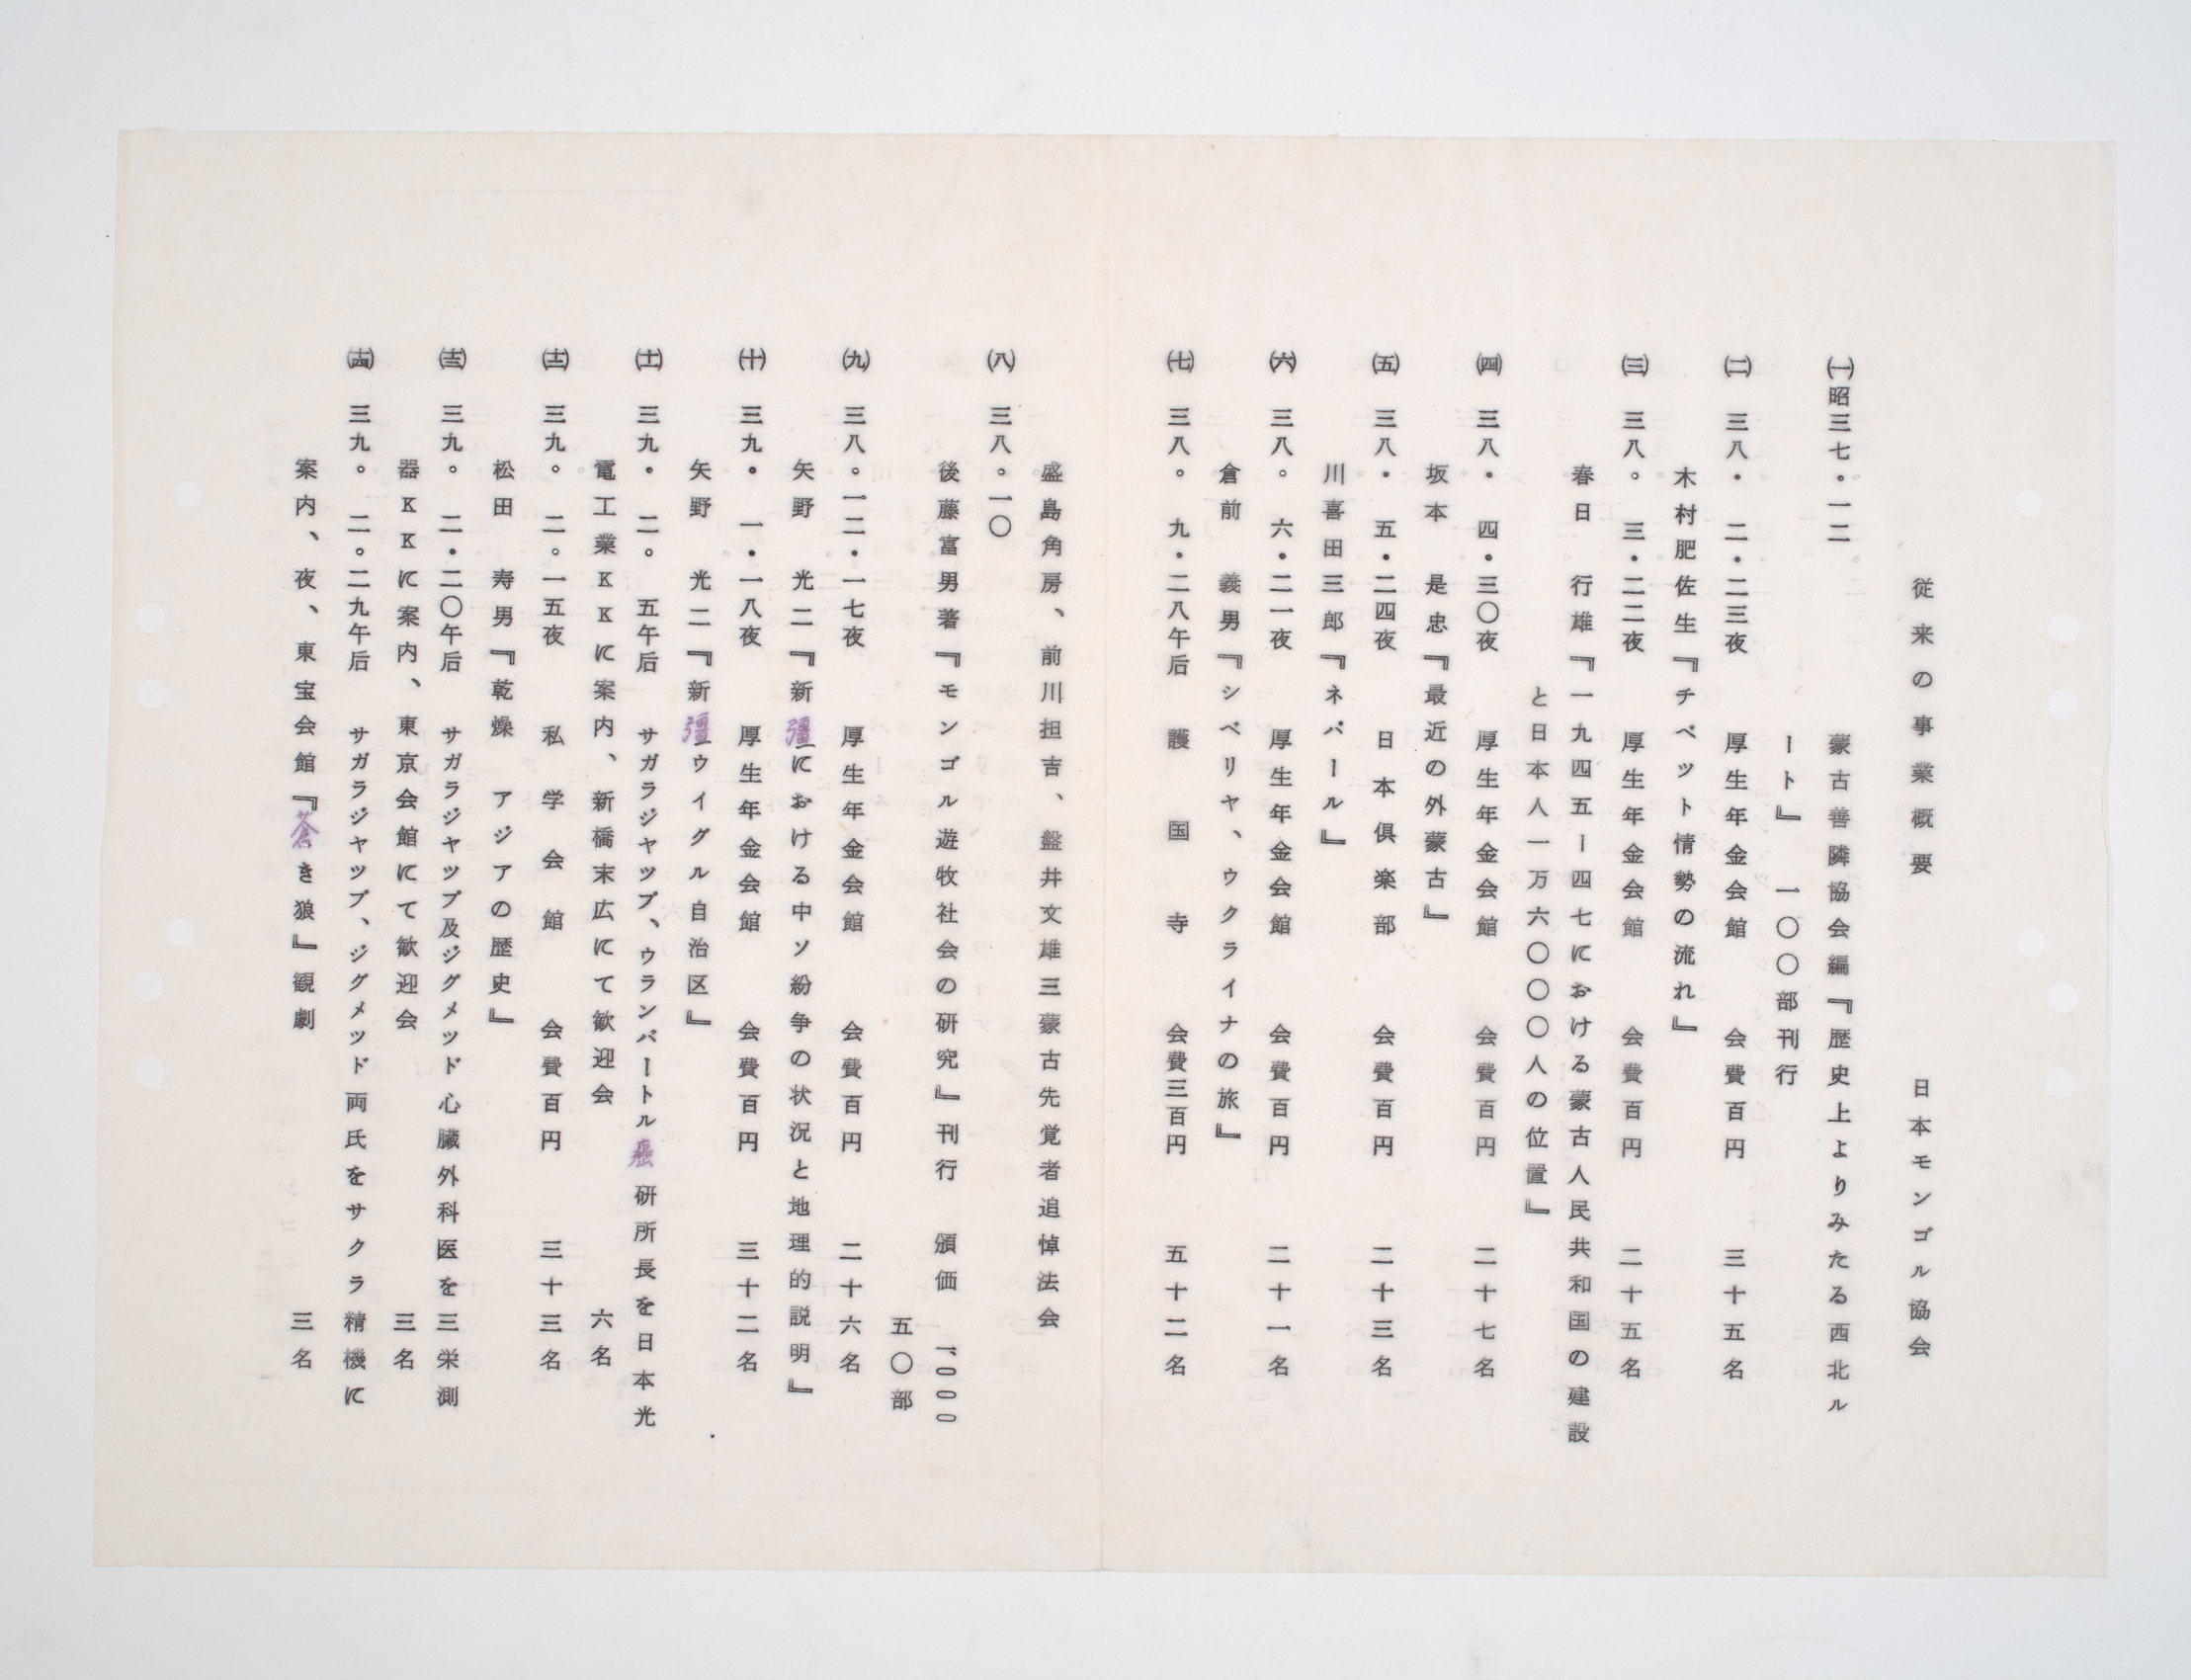 従来の事業概要　日本モンゴル協会
㈠昭三七・一二　蒙古善隣協会編『歴史上よりみたる西北ル
ート』　一〇〇部刊行
㈡　三八・　二・二三夜　厚生年金会館　会費百円　三十五名
木村肥佐生『チベット情勢の流れ』
㈢　三八。　三・二二夜　厚生年金会館　会費百円　二十五名
春日　行雄『一九四五ー四七における蒙古人民共和国の建設
と日本人一万六〇〇〇人の位置』
㈣　三八・　四・三〇夜　厚生年金会館　会費百円　二十七名
坂本　是忠『最近の外蒙古』
㈤　三八・　五・二四夜　日本倶楽部　会費百円　二十三名
川喜田三郎『ネパール』
㈥　三八。　六・二一夜　厚生年金会館　会費百円　二十一名
倉前　義男『シベリヤ、ウクライナの旅』
㈦　三八。　九・二八午后　護国寺　会費三百円　五十二名
盛島角房、前川担吉、盤井文雄三蒙古先覚者追悼法会
㈧　三八。一〇
後藤富男著『モンゴル遊牧社会の研究』刊行　頒価　1,000
五〇部
㈨　三八。一二・一七夜　厚生年金会館　会費百円　二十六名
矢野　光二『新疆における中ソ紛争の状況と地理的説明』
㈩　三九・　一・一八夜　厚生年金会館　会費百円　三十二名
矢野　光二『新疆ウイグル自治区』
(十一)　三九・　二。　五午后　サガラジヤツプ、ウランバートル研所長を日本光
電工業KKに案内、新橋末広にて歓迎会　六名
(十二)　三九。　二。一五夜　私学会館　会費百円　三十三名
松田　寿男『乾燥　アジアの歴史』
(十三)　三九。　二・二〇午后　サガラジヤツプ及ジグメツド心臓外科医を三栄測
器KKに案内、東京会館にて歓迎会　三名
(十四)　三九。　二。二九午后　サガラジヤツプ、ジグメツド両氏をサクラ精機に
案内、夜、東宝会館『蒼き狼』観劇　三名